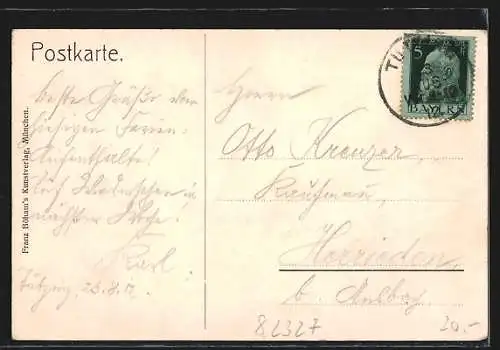 Postkarte.
5
BAYERN
TU
Beste Grüße vom
hiesigen Ferien-
Aufenthalte!
Auf Wiedersehen in
nächster Woche.
Karl.
Tutzing, 23.8.12.
Franz Böham's Kunstverlag, München.
Herrn
Otto Kreuzer,
Kaufmann,
Herrieden
b. Ansbach
82327
20.-